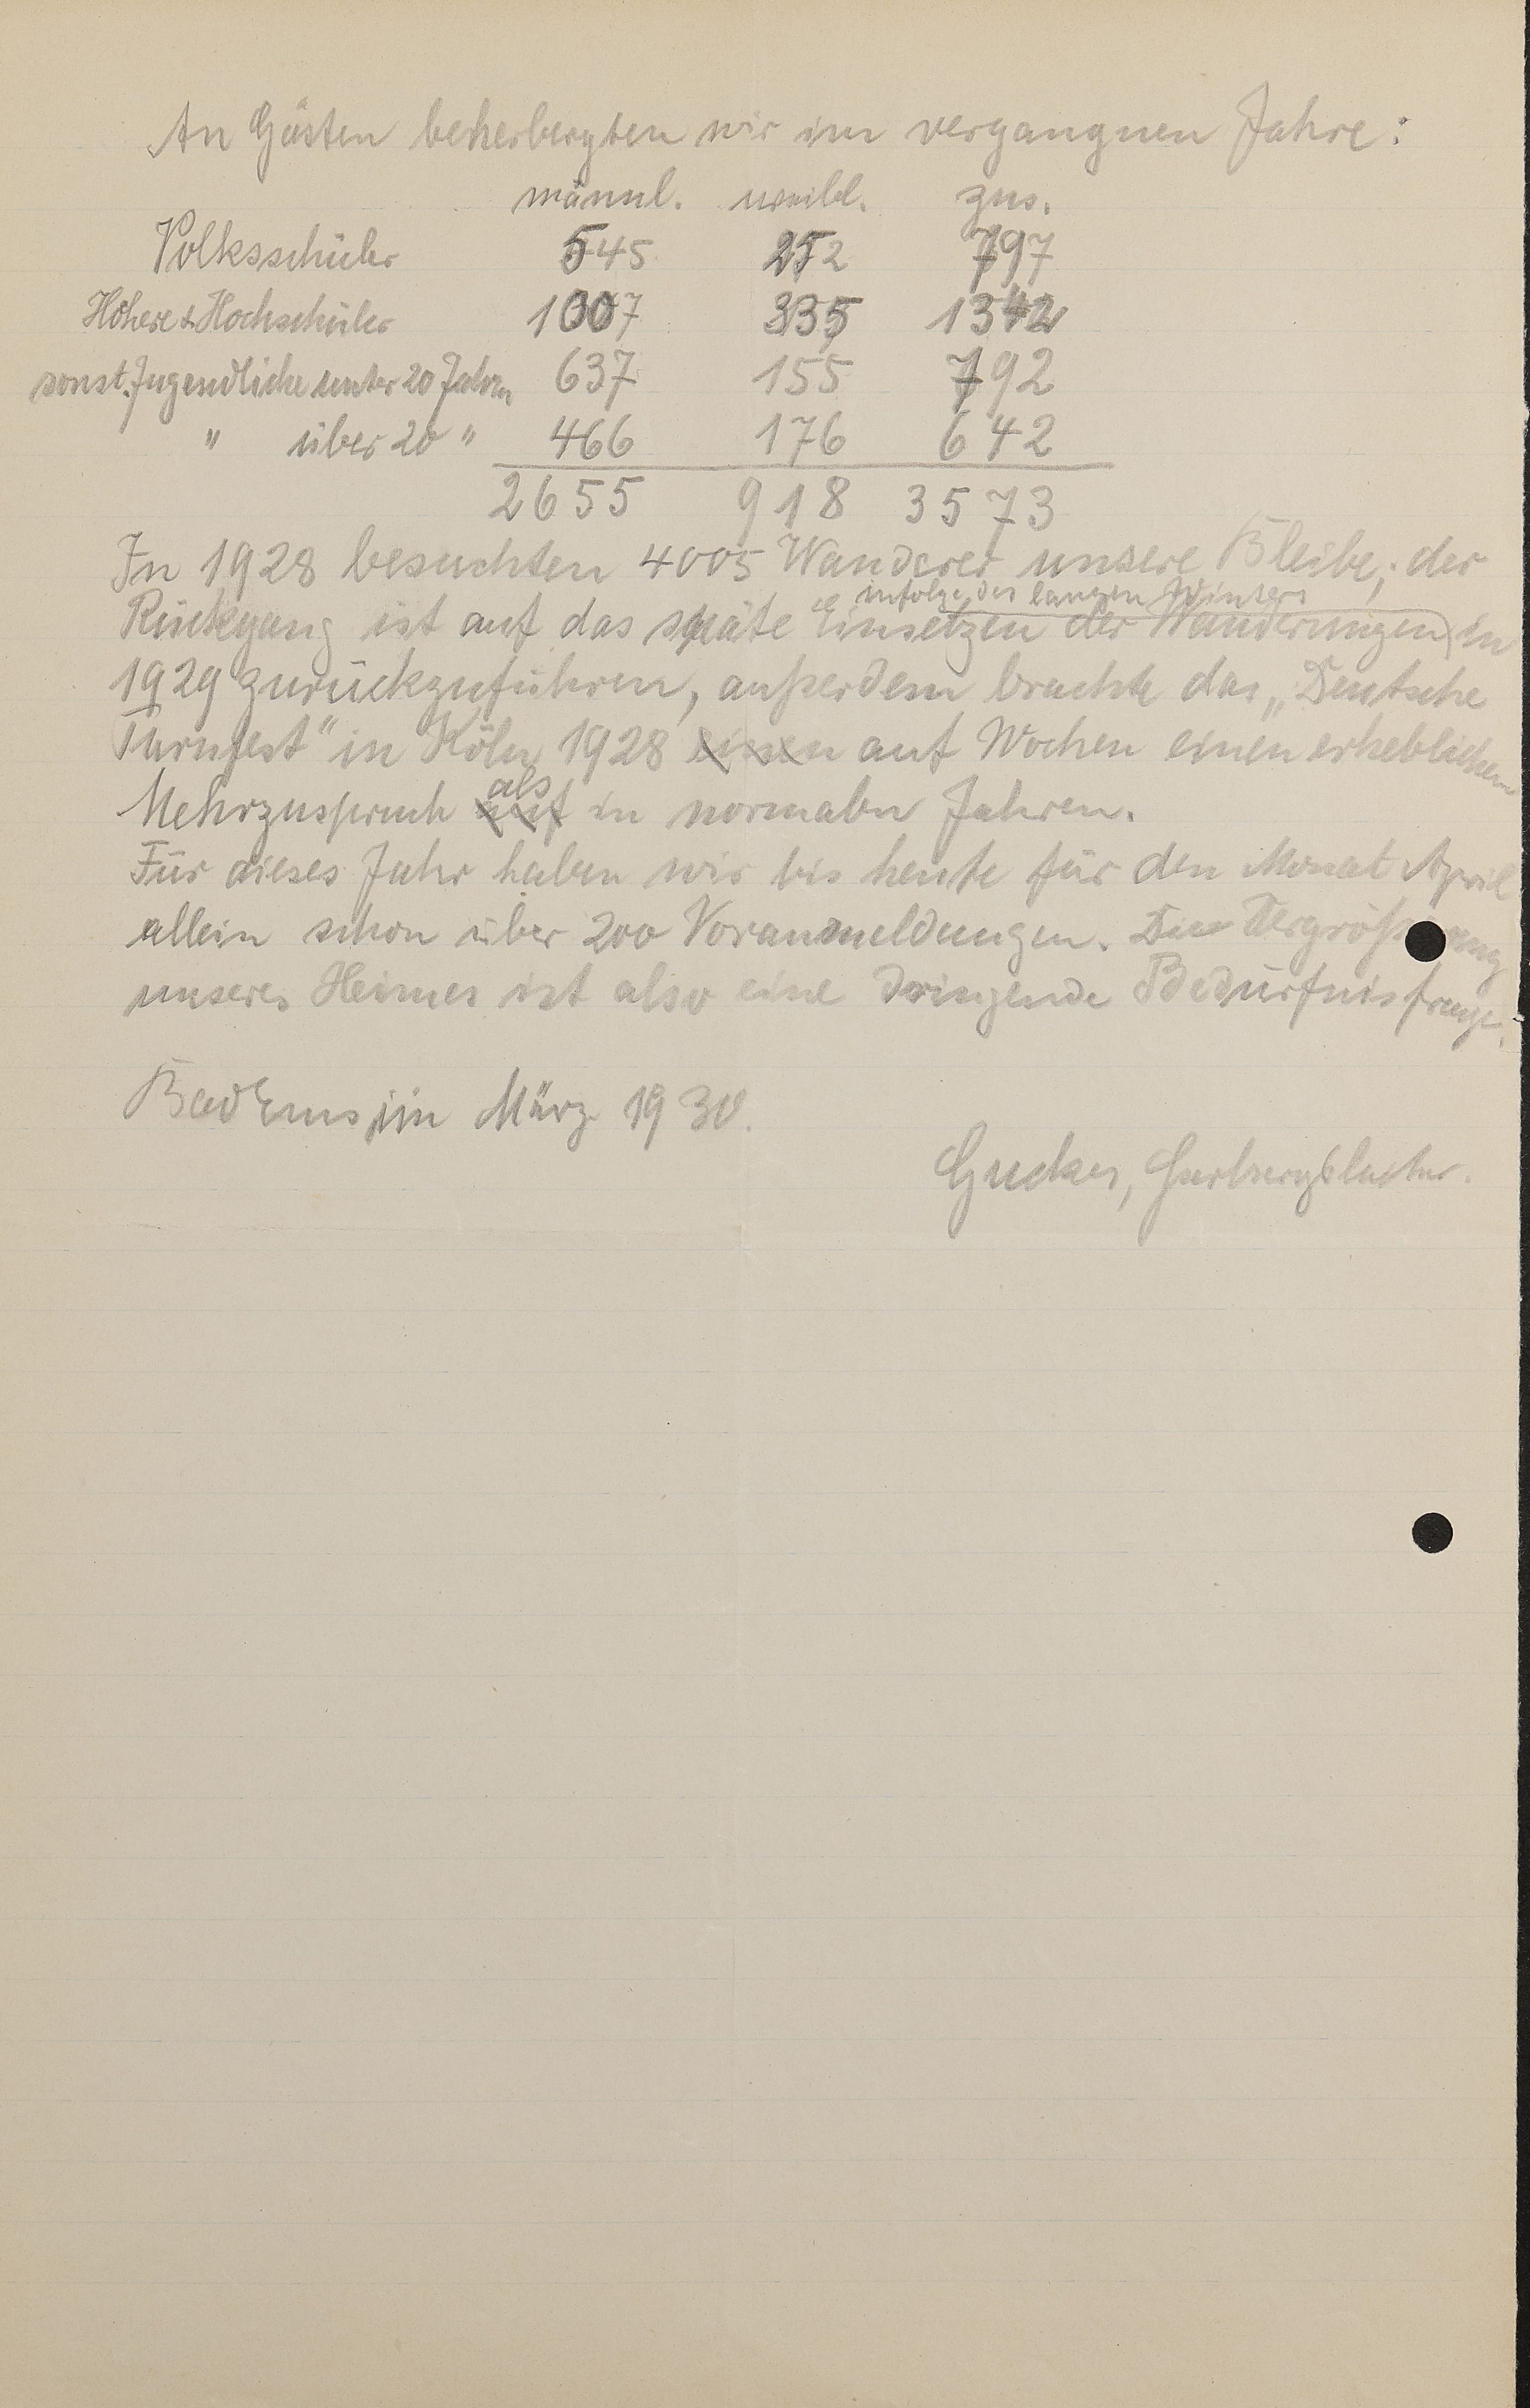 An Gästen beherbergten wir im vergangnen Jahre:
männl. weibl. zus.
Volksschüler 545 252 797
Höhere & Hochschüler 1007 335 1342
sonst. Jugendliche unter 20 Jahren 637 155 792
" über 20 " 466 176 642
2655 918 3573
In 1928 besuchten 4005 Wanderer unsere Bleibe; der
infolge des langen Winters
Rückgang ist auf das späte Einsetzen der Wanderungen in
1929 zurückzuführen, außerdem brachte das „Deutsche
Turnfest" in Köln 1928 einen auf Wochen einen erheblichen
als
Mehrzuspruch auf in normalen Jahren.
Für dieses Jahr haben wir bis heute für den Monat April
allein schon über 200 Voranmeldungen. Die Vergrößerung
unseres Heimes ist also eine dringende Bedürfnisfrage.
Bad Ems, im März 1930.
Gucker, Herbergsleiter.